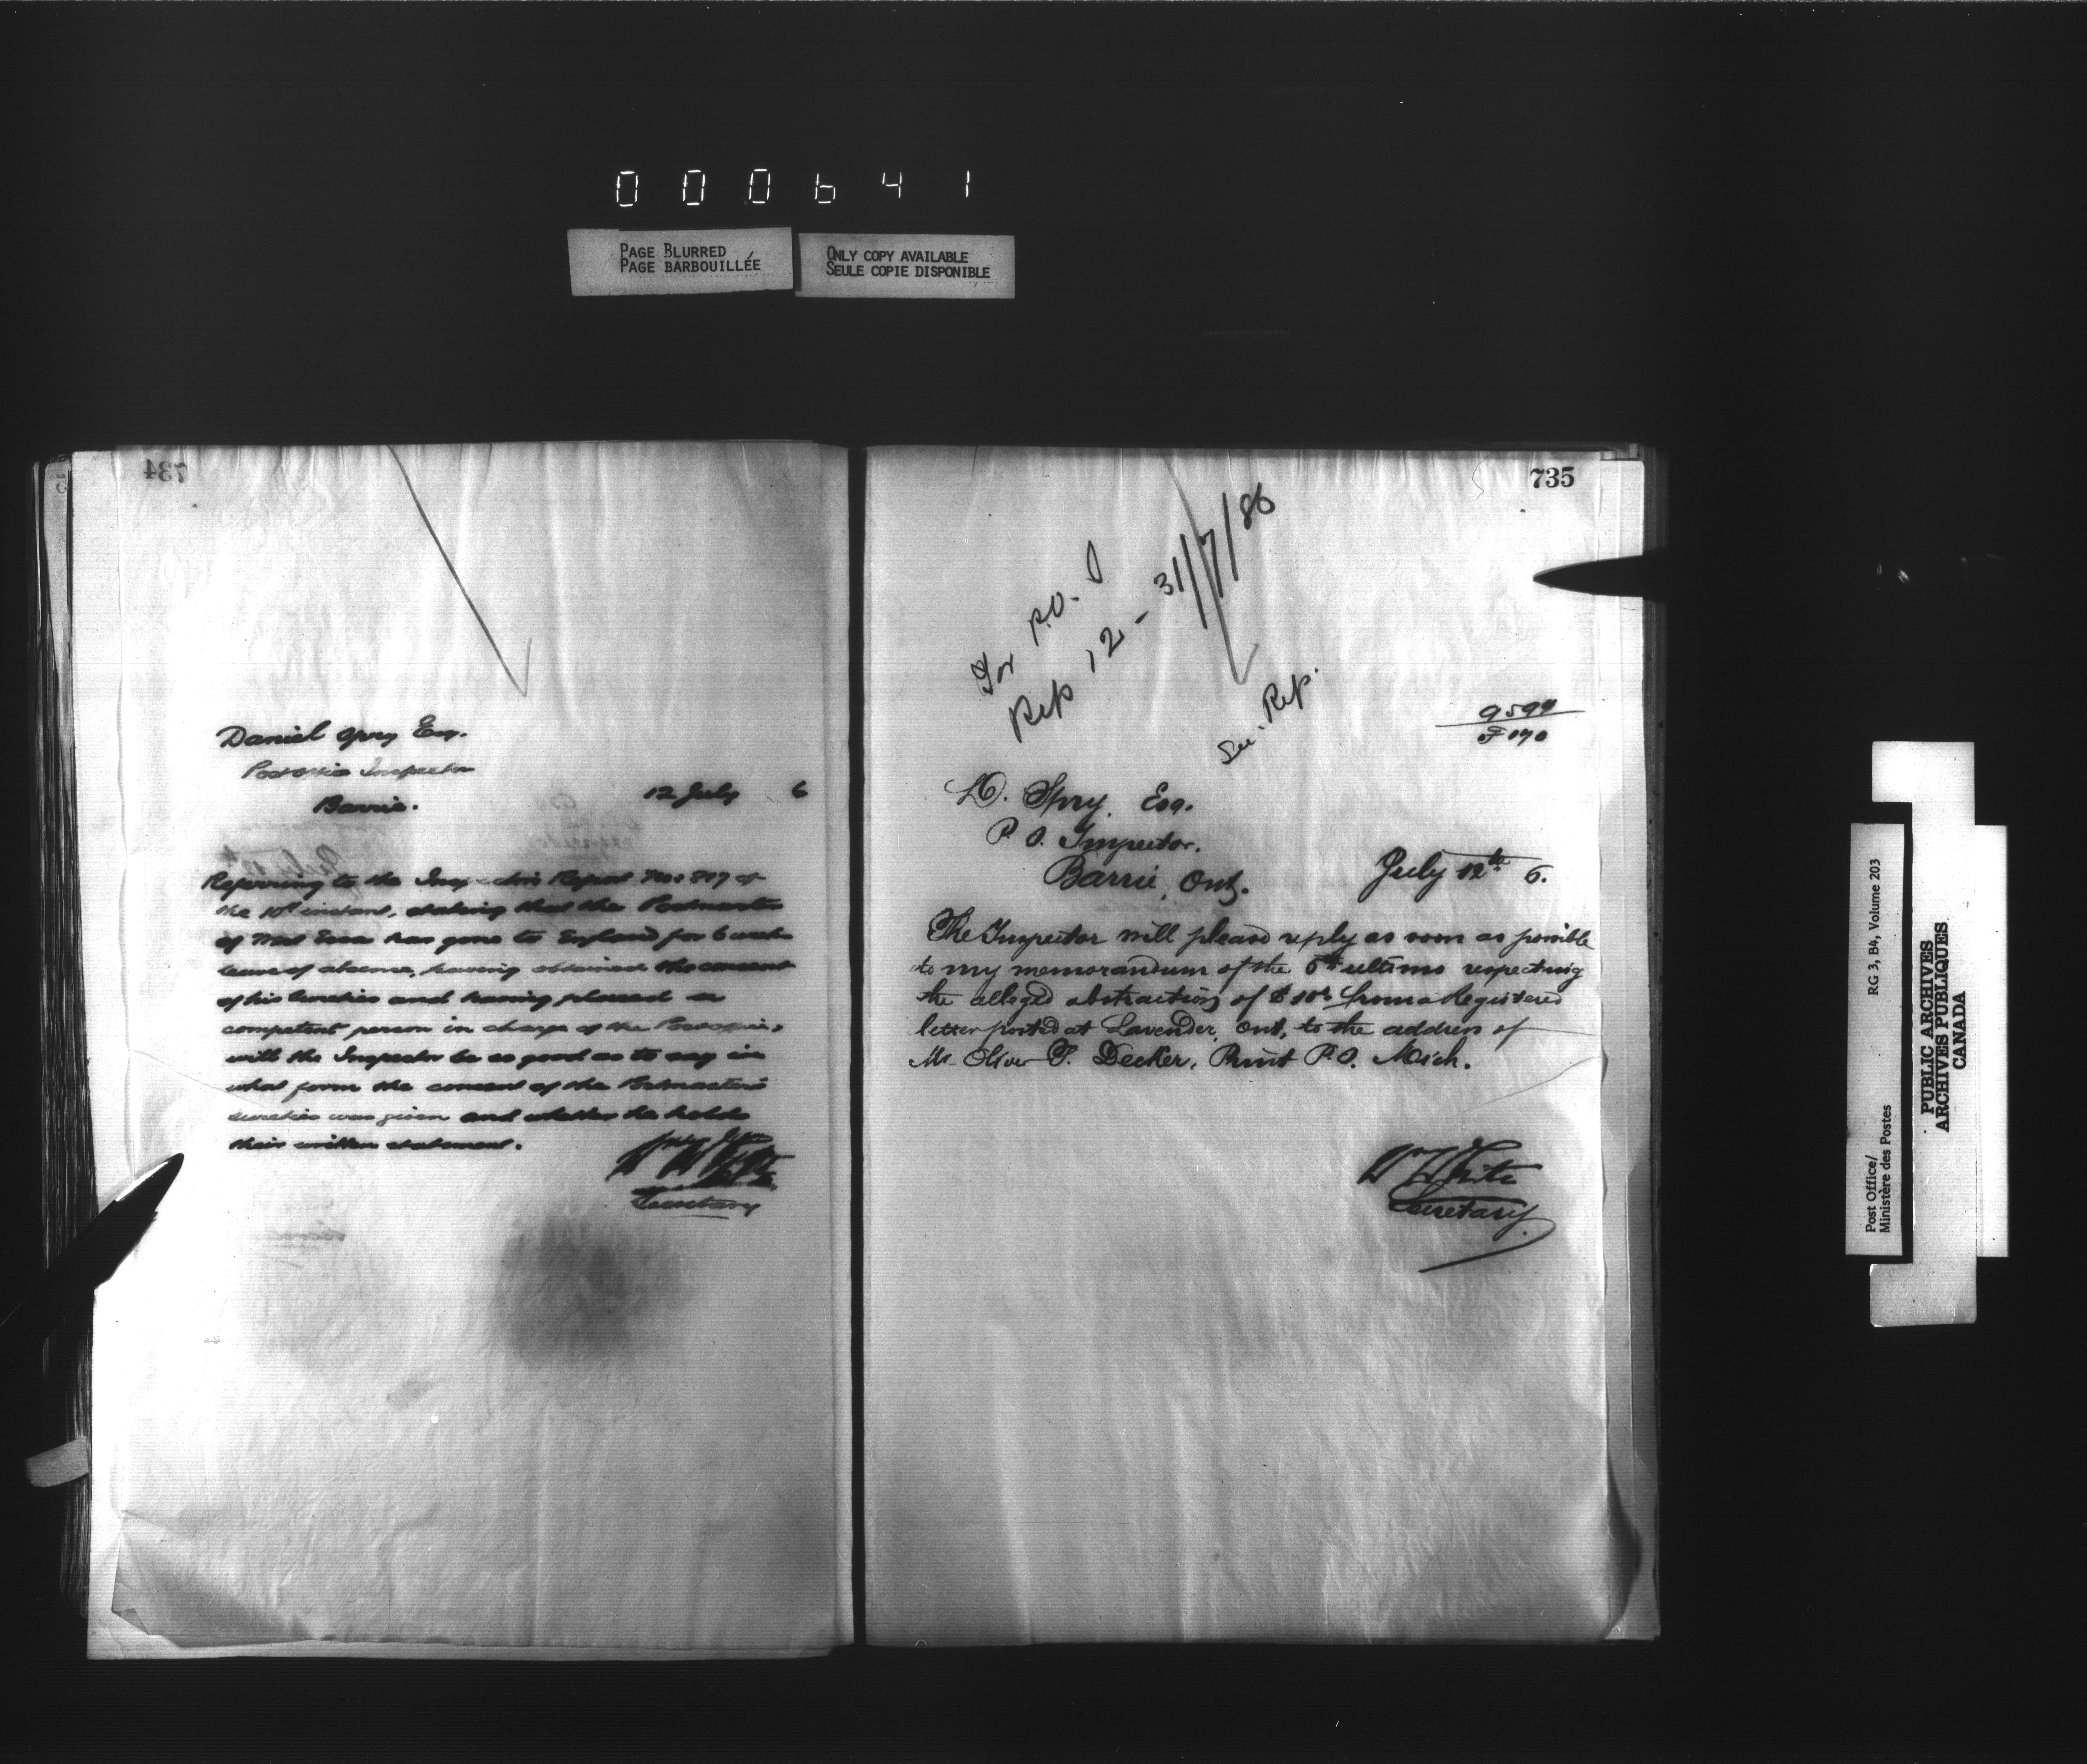 000641
PAGE BLURRED
PAGE BARBOUILLÉE
ONLY COPY AVAILABLE
SEULE COPIE DISPONIBLE
734
Daniel Spry Esq.
Post Office Inspector
Barrie.
12 July 6
Referring to the Inspector's Report No: 817 of
the 10th instant, stating that the Postmaster
of has gone to England for 6 weeks
leave of absence, having obtained the consent
of his sureties and having placed a
competent person in charge of the Post office,
will the Inspector be so good as to say in
what form the consent of the Postmaster's
sureties was given and whether he holds
their written statement.
Secretary
735
For P.O. I
Rep 12 - 31/7/86
See. Rep.
D. Spry. Esq.
P. O. Inspector.
Barrie, Ont.
July 12th 6.
The Inspector will please reply as soon as possible
to my memorandum of the 5th ultimo respecting
the alleged abstraction of $10 from a Registered
letter posted at Lavender, Ont, to the address of
Mr Oliver Decker, P.O. Mich.
W White
Secretary
Post Office/
Ministère des Postes
RG 3, B4, Volume 203
PUBLIC ARCHIVES
ARCHIVES PUBLIQUES
CANADA